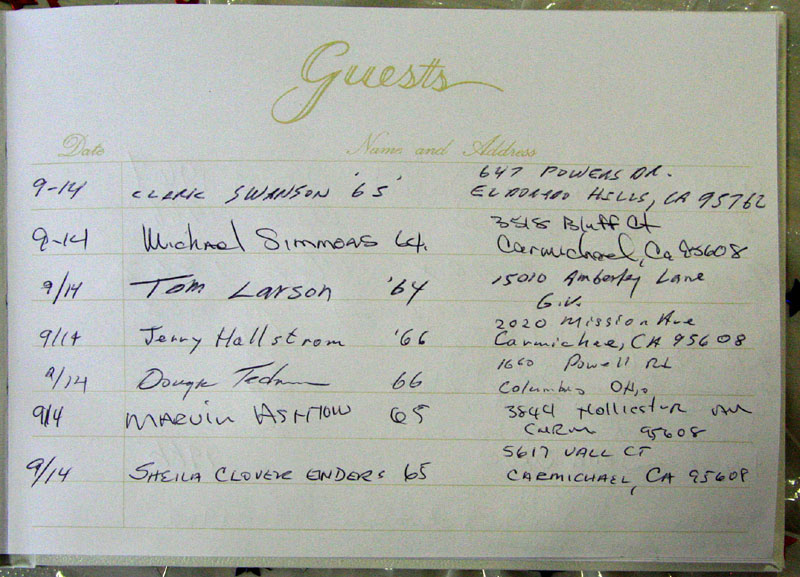 Guests
Date Name and Address
9-14 CLARK SWANSON '65' 647 POWERS DR.
EL DORADO HILLS, CA 95762
9-14 Michael Simmons 64. 3518 Bluff Ct
Carmichael, Ca 95608
9/14 Tom Larson '64 15010 Amberley Lane
G.V.
9/14 Jerry Hallstrom '66 2020 Mission Ave
Carmichae, CA 95608
9/14 Doug 66 1660 Powell Rd
Columbus Ohio
9/4 MARVIN 65 3844 Hollister
CARM 95608
9/14 SHEILA CLOVER ENDERS 65 5617 VALL CT
CARMICHAEL, CA 95608